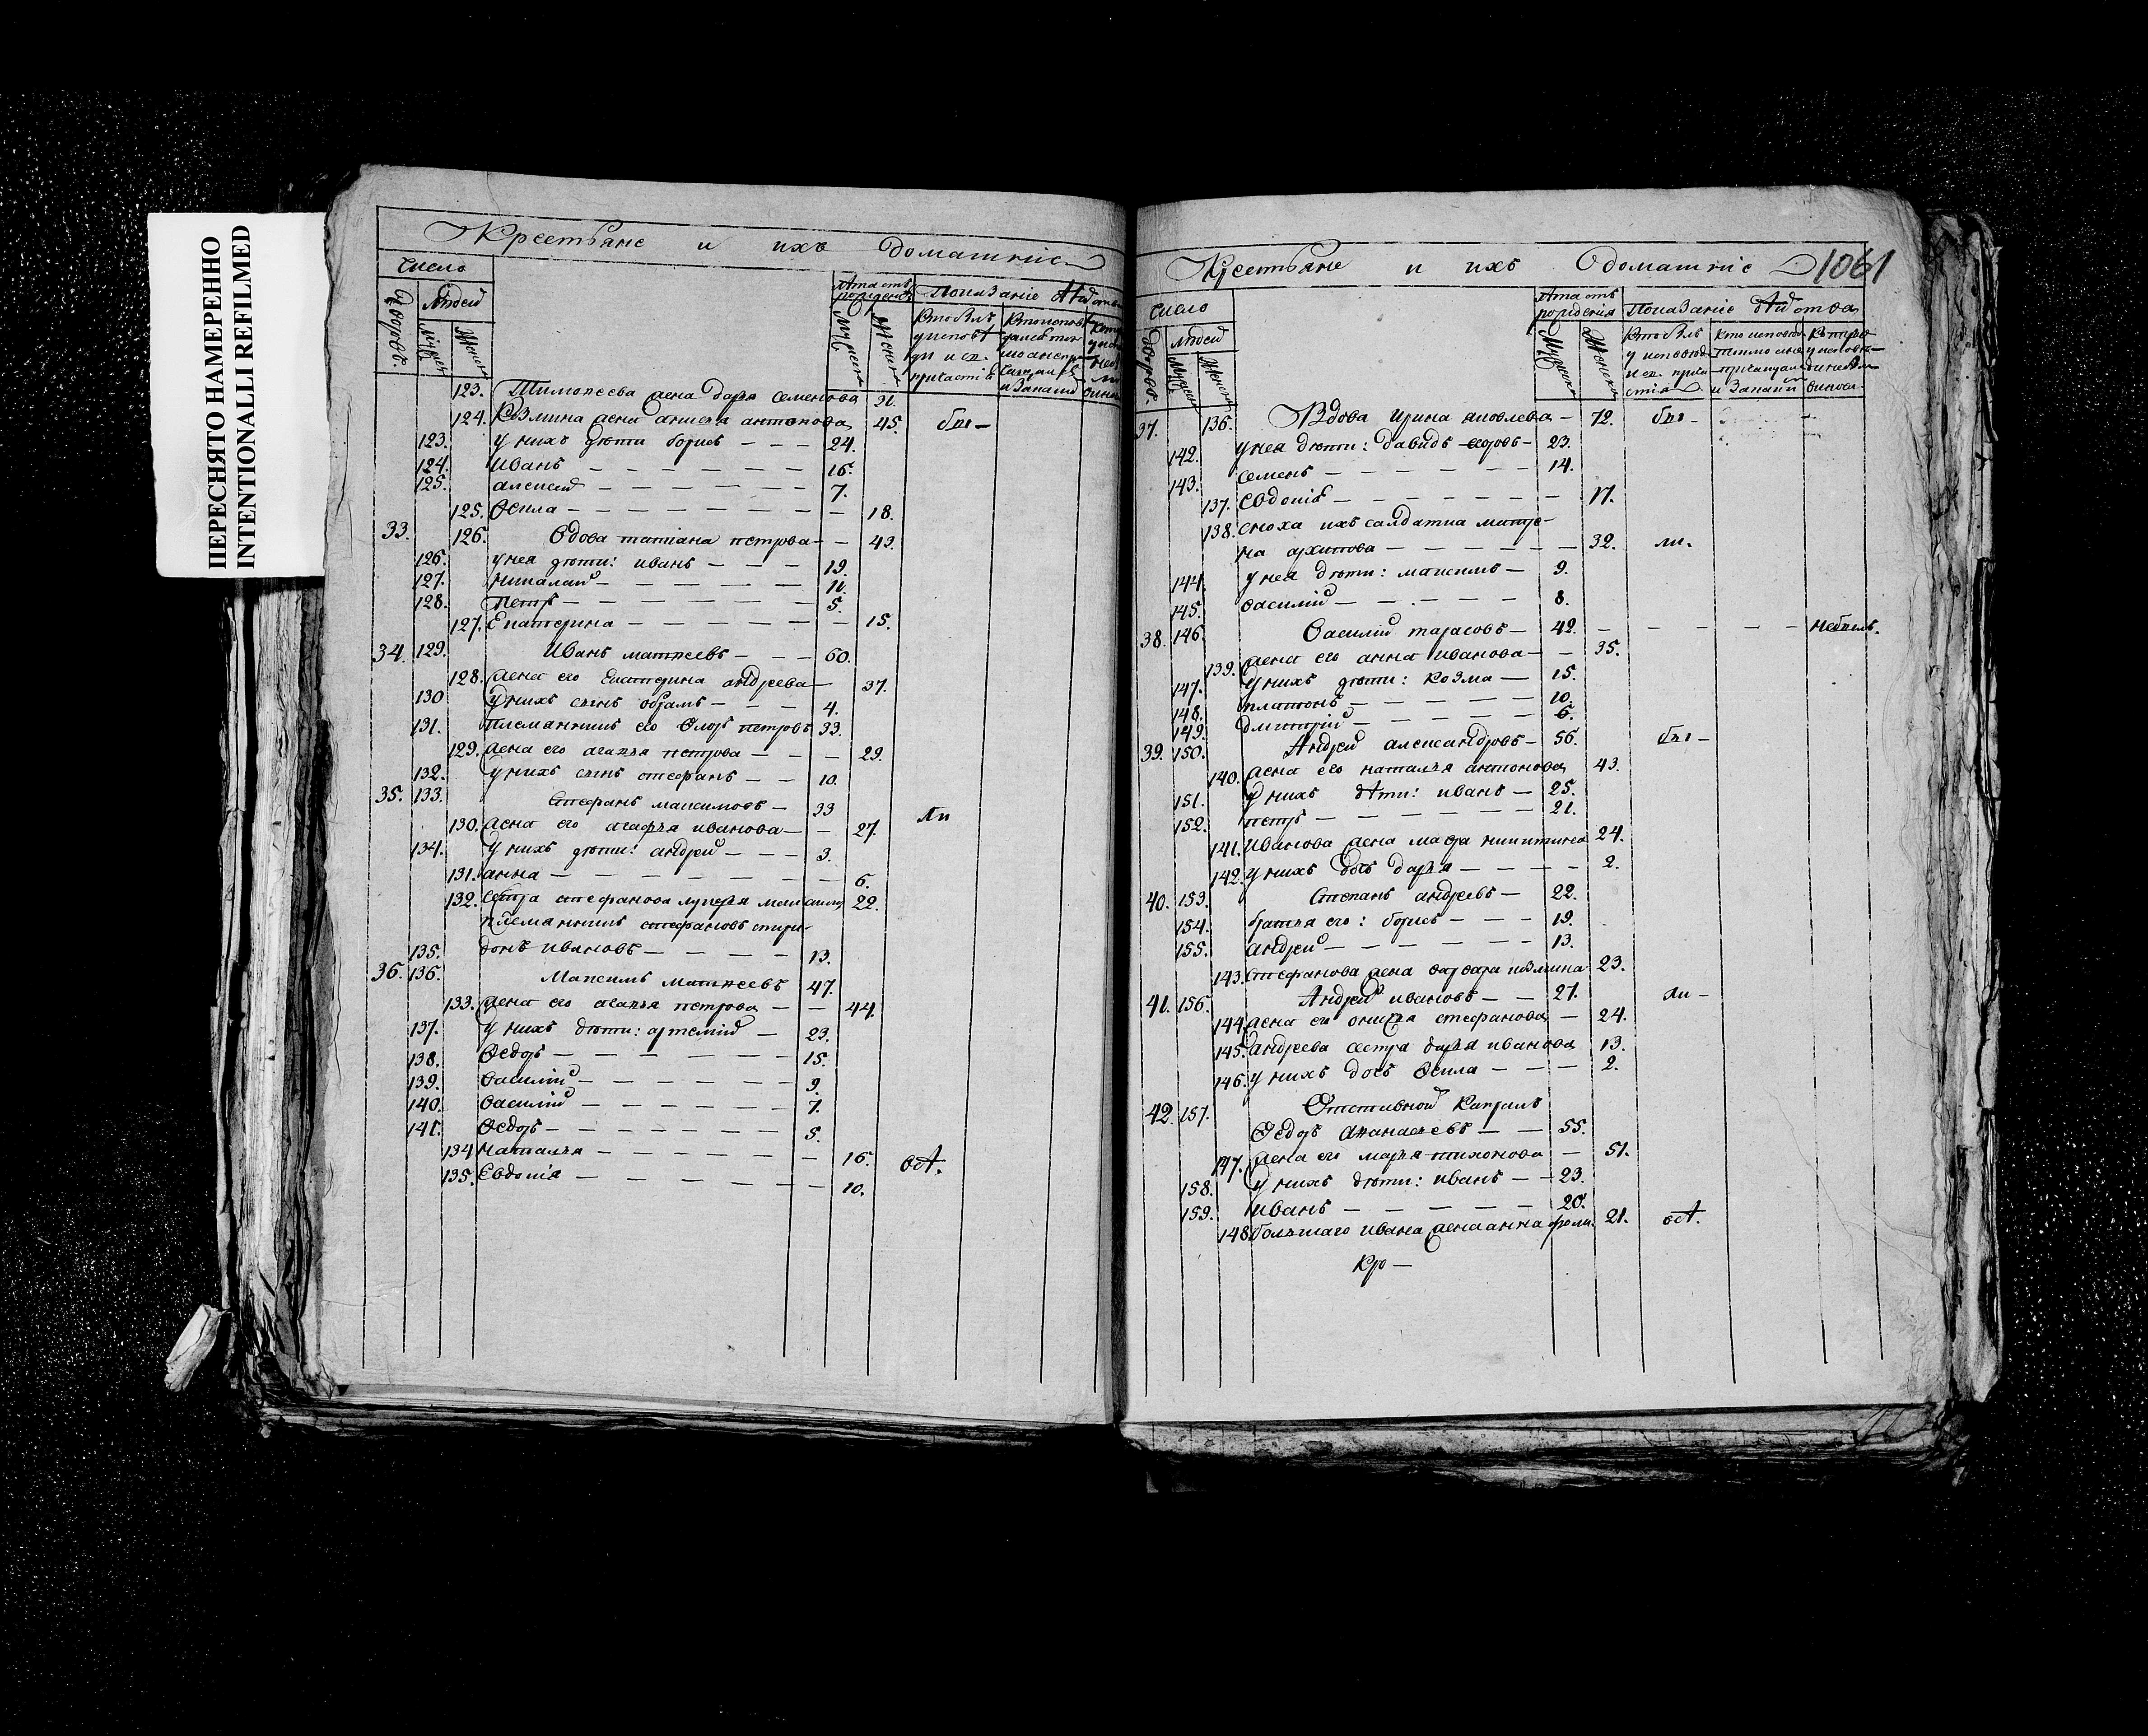 ПЕРЕСНЯТО НАМЕРЕННО
INTENTIONALLI REFILMED
Крестьяне и ихъ домашнiе
число
дворовъ людей
мужеск женск
Лѣта отъ рожденiя
мужеск женск
Показанiе дѣйства
123. Тимоѳеева жена дарья семенова 21.
124. Козмина жена анисья антонова 45. бы –
123. у нихъ дѣти борисъ – – – 24.
124. иванъ – – – – – – 16.
125. алексей – – – – – 7.
125. Ѳекла – – – – – – – 18.
33. 126. Вдова татiана петрова – – 43.
126. у нея дѣти: иванъ – – – 19.
127. николай – – – – – 11.
128. петръ – – – – – – 5.
127. Екатерина – – – – – – 15.
34. 129. Иванъ матѳеевъ – – – 60.
128. жена его Екатерина андреева – 37.
130 у нихъ сынъ абрамъ – – – 4.
131. племянникъ его Ѳлоръ петровъ 33.
129. жена его агаѳья петрова – – – 29.
132. у нихъ сынъ стефанъ – – 10.
35. 133. Стефанъ максимовъ – 33
130. жена его агафья иванова – – 27. ли
134. у нихъ дѣти: андрей – – – 3.
131. анна – – – – – – – – 6.
132. сестра стефанова лукерья максим 22.
племянникъ стефановъ спири-
135. донъ ивановъ – – – – 13.
36. 136. Максимъ матѳеевъ 47.
133. жена его агаѳья петрова – – 44.
137. у нихъ дѣти: артемiй – 23.
138. Ѳедоръ – – – – – – 15.
139. василiй – – – – – – 9.
140. василiй – – – – – – 7.
141. Ѳедоръ – – – – – – 5.
134 наталья – – – – – – 16. всѣ.
135. Евдокiя – – – – – – – 10.
Крестьяне и ихъ домашнiе 1061
число
дворовъ людей
мужеск женск
Лѣта отъ рожденiя
мужеска женска
Показанiе дѣйства
37. 136. Вдова ирина яковлева – 72. бы –
142. у нея дѣти: давидъ – 23.
143. семенъ – – – – – – 14.
137. евдокiя – – – – – – 17.
138. сноха ихъ салдатка матре-
на архипова – – – – – – 32. ли.
144. у нея дѣти: максимъ – 9.
145. василiй – – – – – 8.
38. 146. Василiй тарасовъ – 42. – – – – – небылъ.
139. жена его анна иванова – – 35.
147. у нихъ дѣти: козма – 15.
148. платонъ – – – – – 10.
149. дмитрiй – – – – – 6.
39. 150. Андрей александровъ – 56. бы –
140. жена его наталья антонова 43.
151. у нихъ дѣти: иванъ – 25.
152. петръ – – – – – – 21.
141. иванова жена мавра никитина 24.
142. у нихъ дочь дарья – – – – 2.
40. 153. Степанъ андреевъ – 22.
154. братья его: борисъ – – – 19.
155. андрей – – – – – – 13.
143. стефанова жена варвара козмина 23.
41. 156. Андрей ивановъ – – 27. ли –
144. жена его онисья стефанова – 24.
145. андреева сестра дарья иванова 13.
146. у нихъ дочь Ѳекла – – – 2.
42. 157. Отставной капралъ
Ѳедоръ аѳанасьевъ – – 55.
147. жена его марья тихонова – 51.
158. у нихъ дѣти: иванъ – – 23.
159. иванъ – – – – – 20.
148. большаго ивана жена анна 21. всѣ.
Кр –